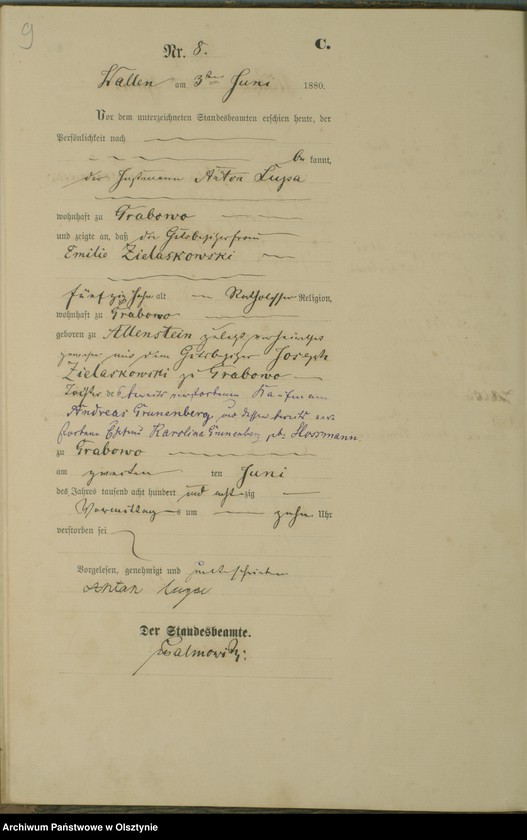 9
C.
Nr. 8.
Wallen am 3ten Juni 1880.
Vor dem unterzeichneten Standesbeamten erschien heute, der
Persönlichkeit nach
be kannt,
der Anton Lupa
wohnhaft zu Grabowo
und zeigte an, daß die Gutsbesitzerfrau
Emilie Zielaskowski
fünfzig Jahre alt Katholischer Religion,
wohnhaft zu Grabowo
geboren zu Allenstein zuletzt verheirathet
gewesen mit dem Gutsbesitzer Joseph
Zielaskowski zu Grabowo
Tochter des bereits verstorbenen Kaufmann
Andreas Grunenberg und dessen bereits ver-
storbene Karolina Grunenberg geb.
zu Grabowo
am zweiten ten Juni
des Jahres tausend acht hundert und acht zig
Vormittag s um zehn Uhr
verstorben sei
Vorgelesen, genehmigt und unterschrieben
Anton Lupa
Der Standesbeamte.
Archiwum Państwowe w Olsztynie